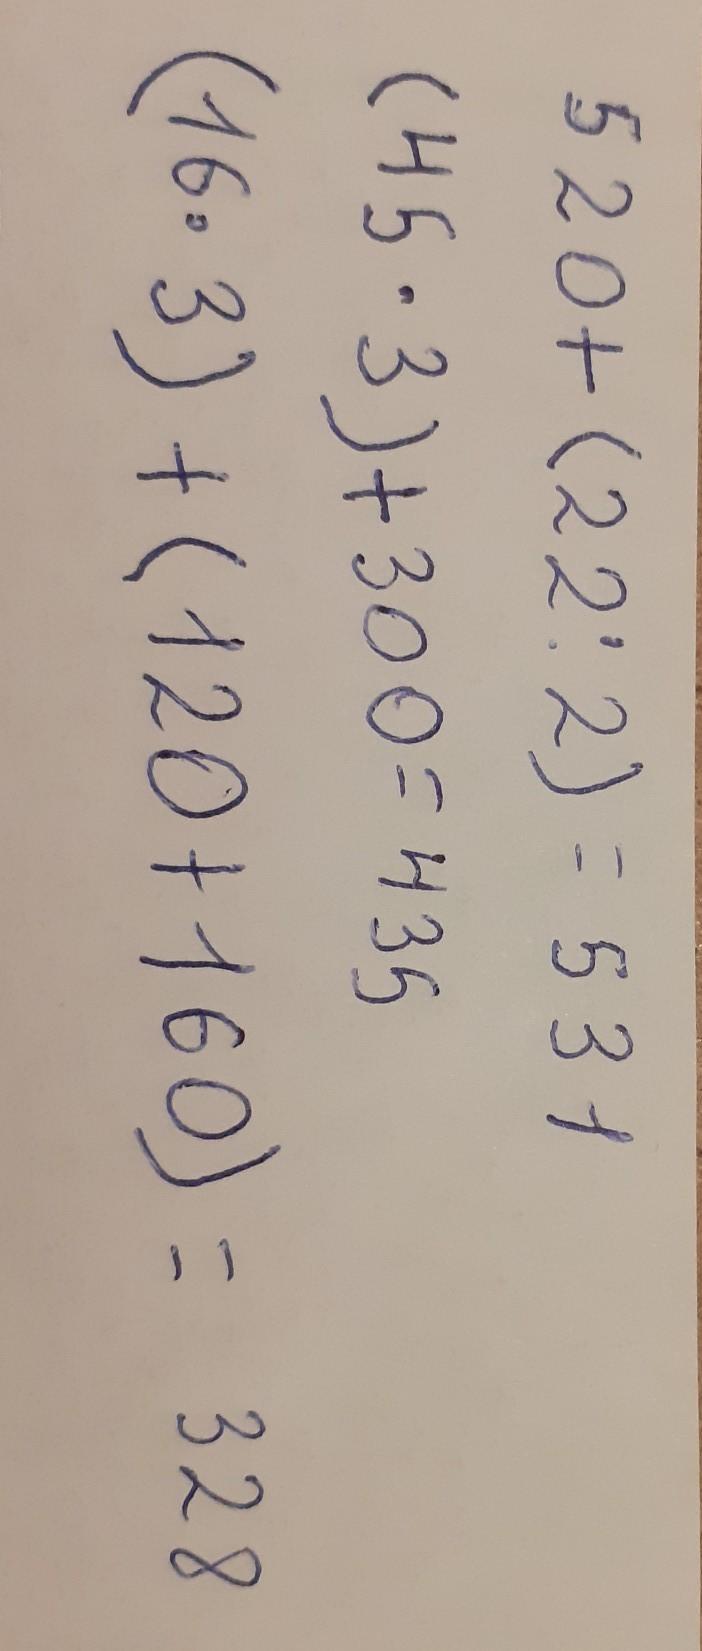 520+(22:2)=531
(45·3)+300=435
(16·3)+(120+160)=328